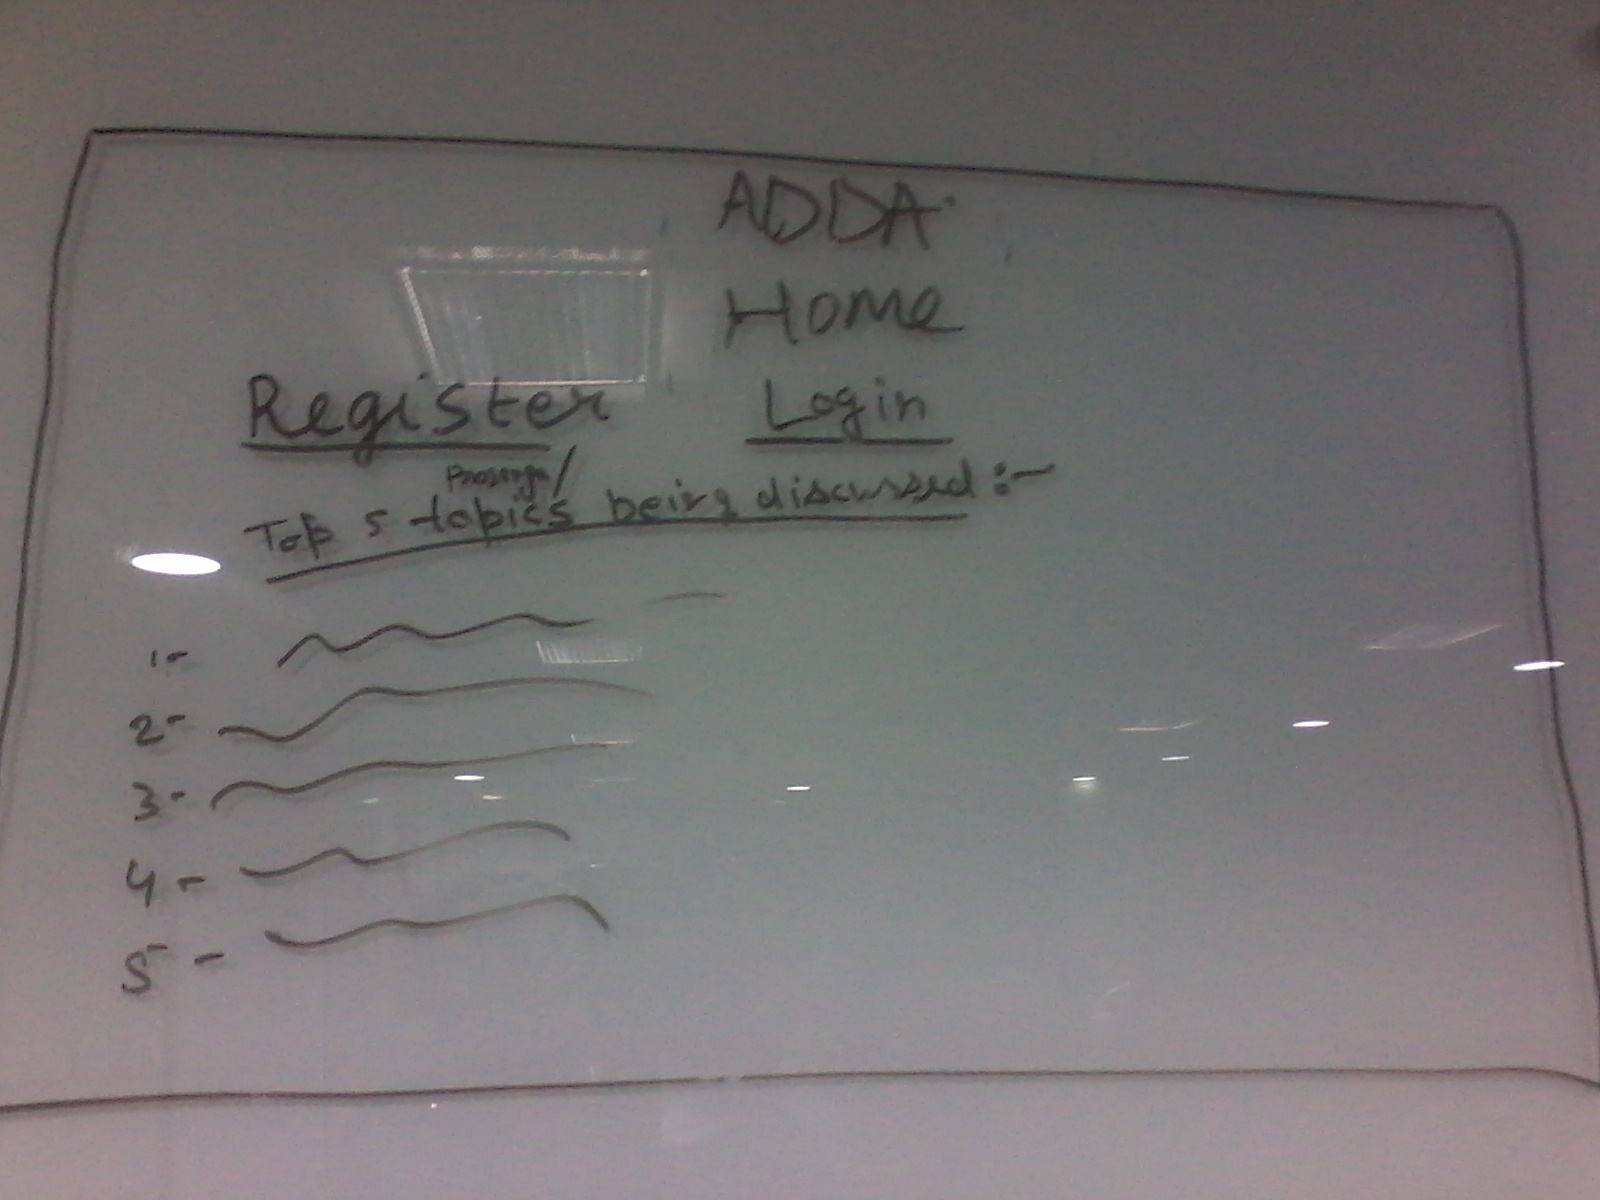 ADDA
Home
Register Login
Top 5 topics being discussed :-
1-
2-
3-
4-
5-